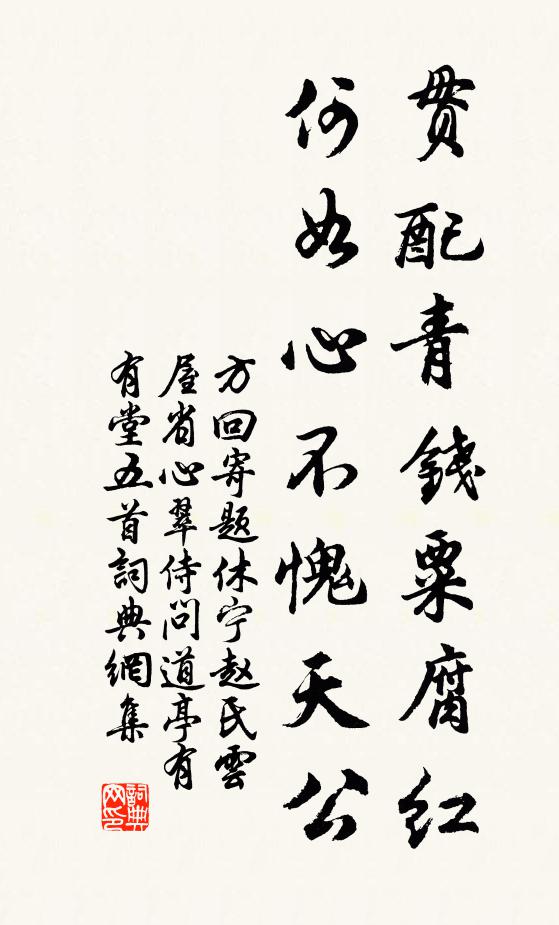 贯配青錢粟腐红
何如心不愧天公
方回寄题休宁赵民雲
屋省心翠侍问道亭有
有堂五首詞典網集
詞典网印